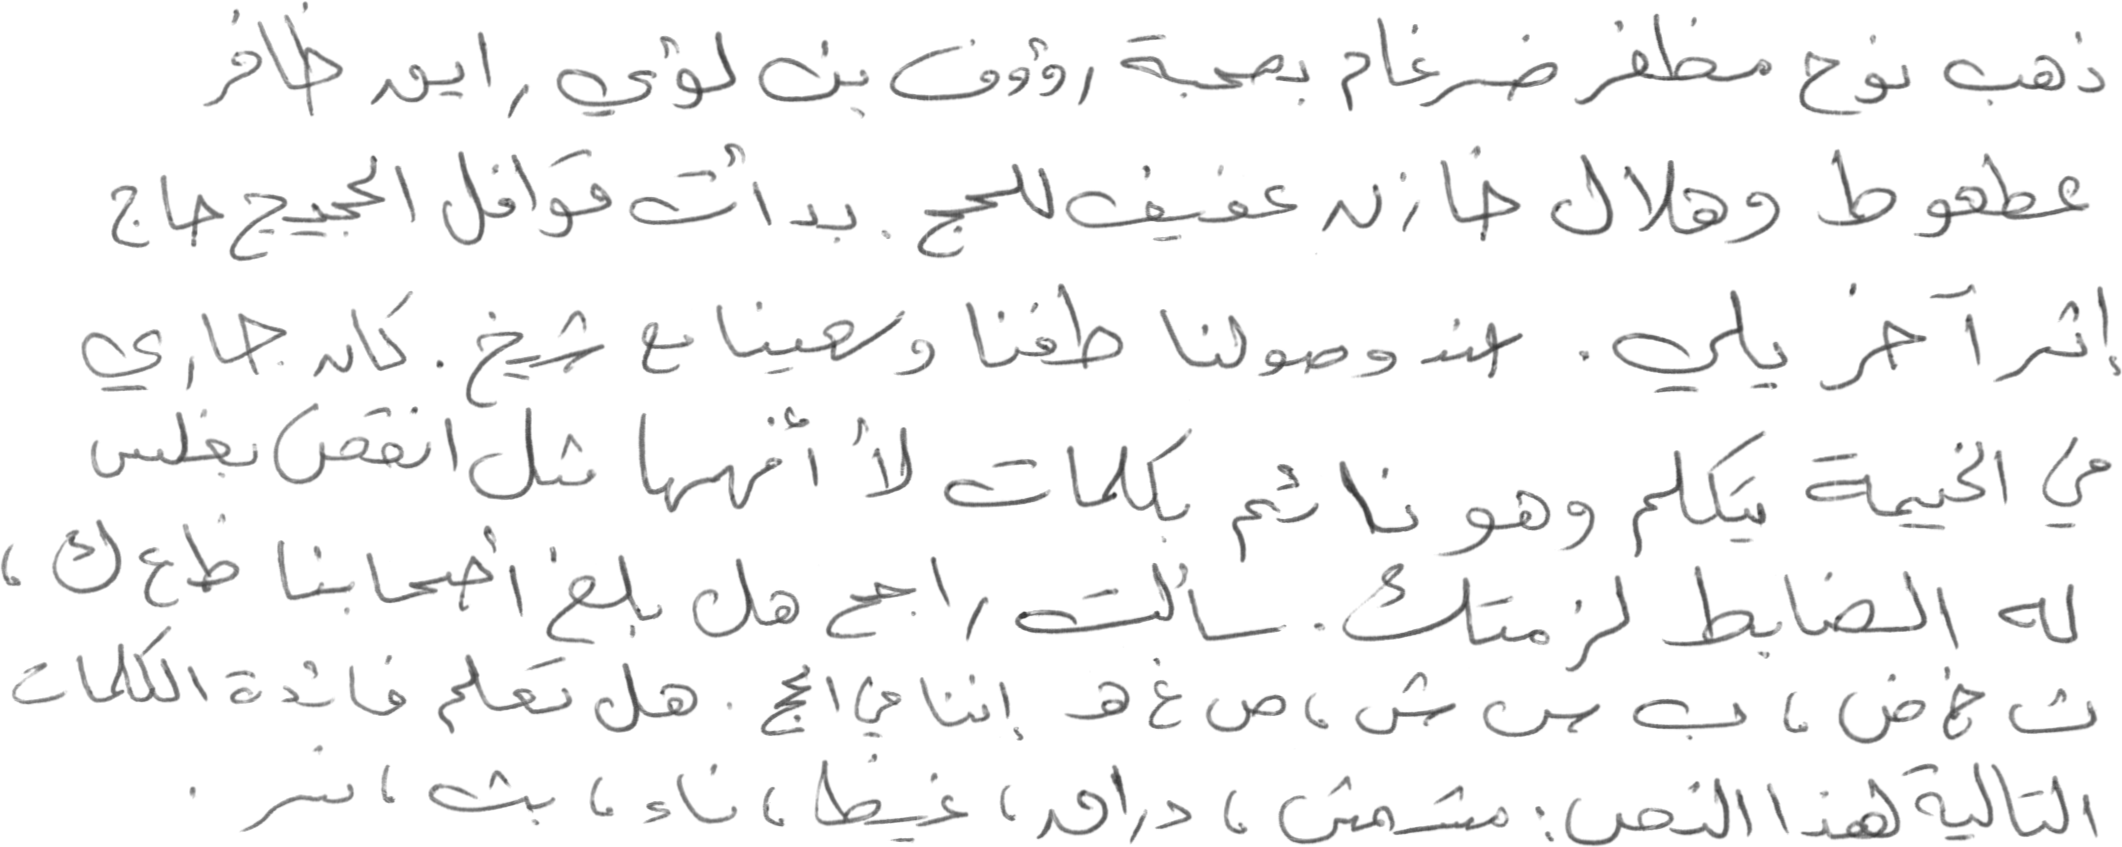 ذهب نوح مظفر ضرغام بصحبة رؤوف بن لؤي رايق ظافر
عطعوط وهلال خازن عفيف للحج. بدأت قوافل الحجيج حاج
إثر آخر يلي. عند وصولنا طفنا وسعينا مع شيخ. كان جاري
في الخيمة يتكلم وهو نائم بكلمات لا أفهمها مثل انقض بغلس
له الضابط لزمتك. سألت راجح هل بلغ أصحابنا ظ ع ك،
ث خ ض، ب س ش، ص غ هـ إننا في الحج. هل تعلم فائدة الكلمات
التالية لهذا النص: مشمش، دراق، غيظ، ناء، بث، نسر.